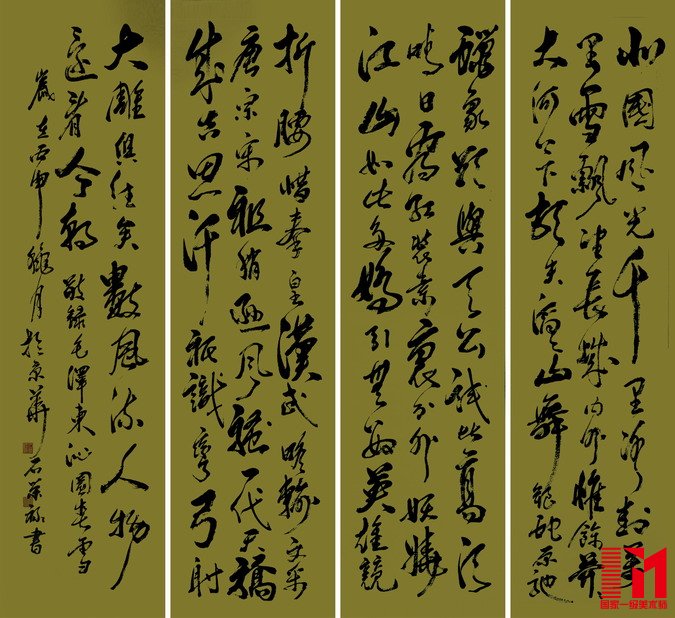 北國風光千里冰封萬
里雪飄望長城內外惟餘莽
大河上下頓失滔滔山舞銀蛇原馳
蠟象欲與天公試比高須
晴日看紅裝素裹分外妖嬈
江山如此多嬌引無數英雄競
折腰惜秦皇漢武略輸文采
唐宗宋祖稍遜風騷一代天驕
成吉思汗祗識彎弓射
大雕俱往矣數風流人物
還看今朝敬錄毛澤東沁園春雪
歲在丙申月於京華石榮書
国家一级美术师